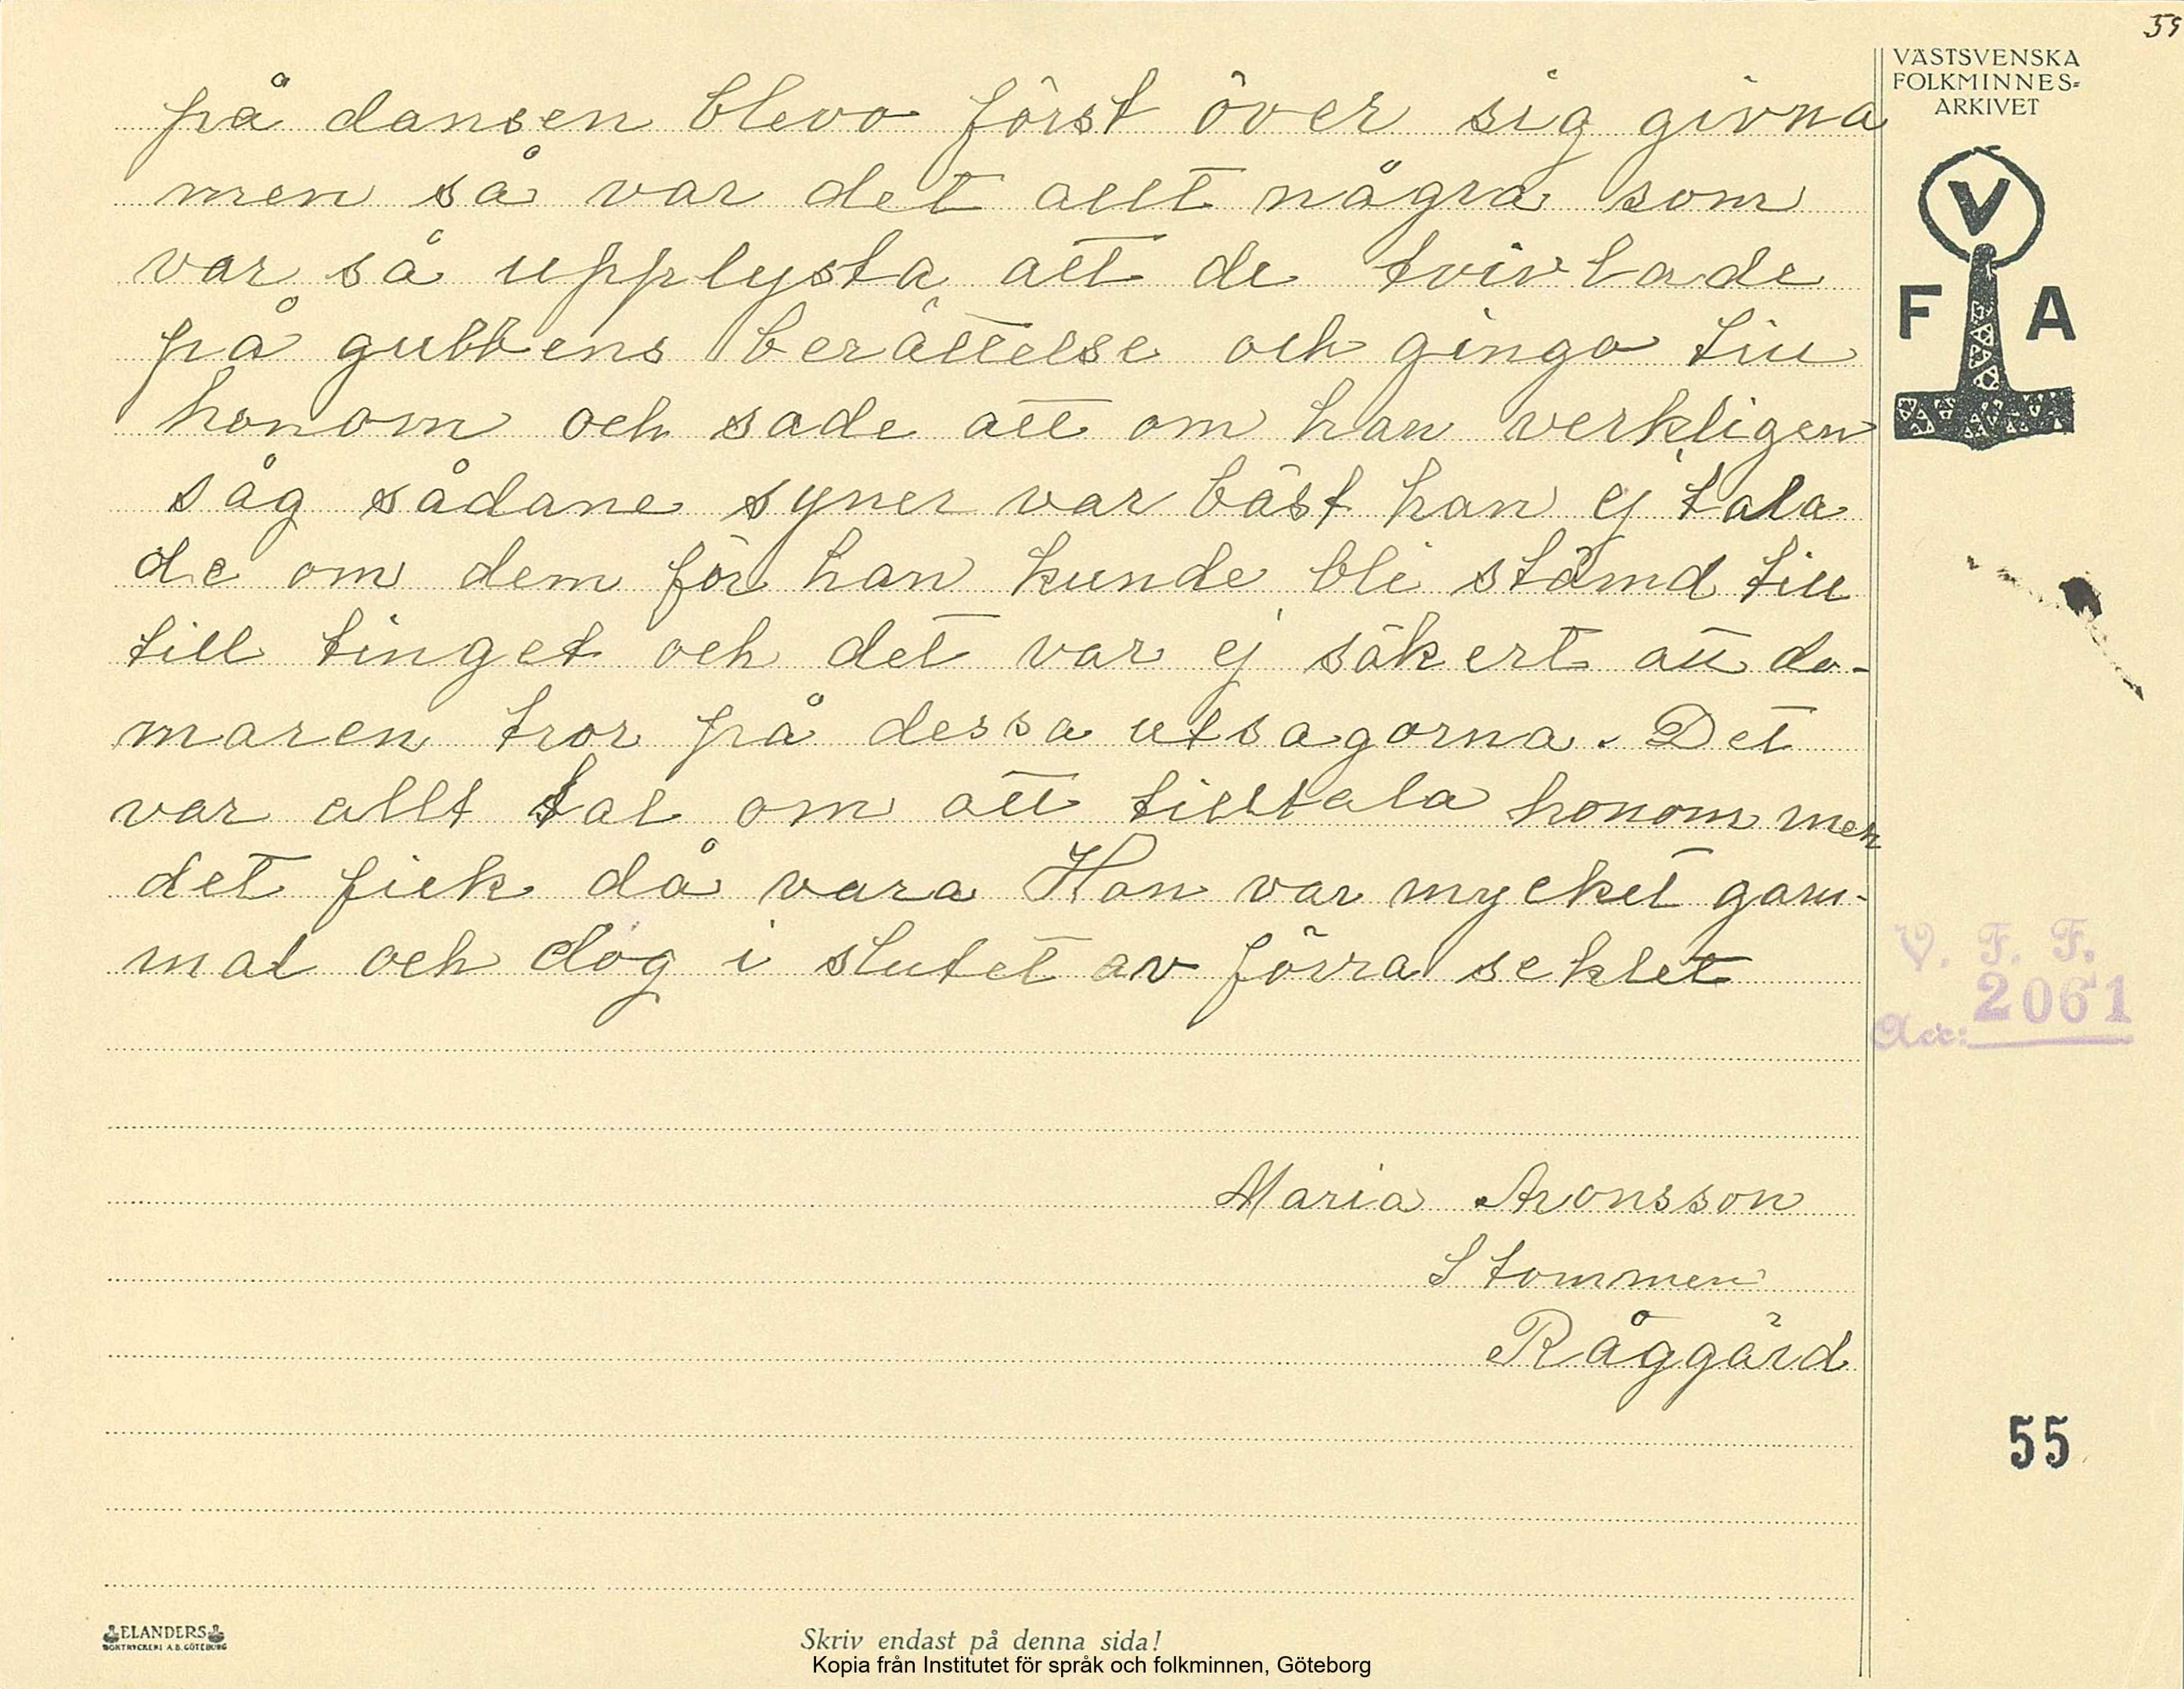 59
VÄSTSVENSKA
FOLKMINNES=
ARKIVET
V
F A
på dansen blevo först över sig givna
men så var det allt några som
var så upplysta att de tvivlade
på gubbens berättelse och gingo till
honom och sade att om han verkligen
såg sådane syner var bäst han ej tala
de om dem för han kunde bli stämd till
till tinget och det var ej säkert att do-
maren tror på dessa utsagorna. Det
var allt tal om att tilltala honom men
det fick då vara Han var mycket gam-
mal och dog i slutet av förra seklet
V. F. F.
Acc: 2061
Maria Aronsson
Stommen
Råggärd
55
ELANDERS
BOKTRYCKERI A.B. GÖTEBORG
Skriv endast på denna sida!
Kopia från Institutet för språk och folkminnen, Göteborg